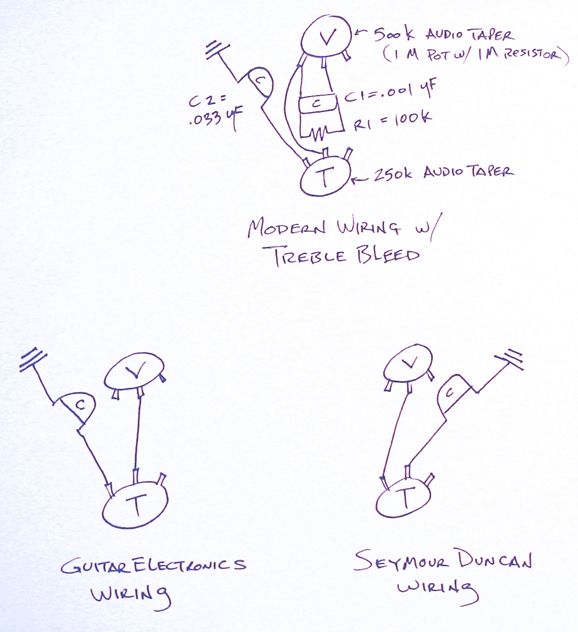 V
500K AUDIO TAPER
(1M POT W/ 1M RESISTOR)
C
C2 =
.033 µF
C
C1 = .001 µF
R1 = 100K
T
250K AUDIO TAPER
MODERN WIRING W/
TREBLE BLEED
V
C
T
GUITARELECTRONICS
WIRING
V
C
T
SEYMOUR DUNCAN
WIRING